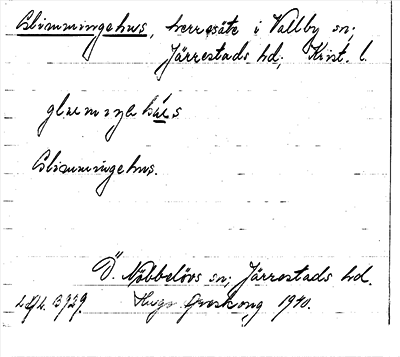 Glimmingehus, herresäte i Vallby sn;
Järrestads hd; Krist. l.
glıemıɳe húes
Glimmingehus.
Ö. Nöbbelövs sn; Järrestads hd.
3729. Hugo Areskoug 1940.